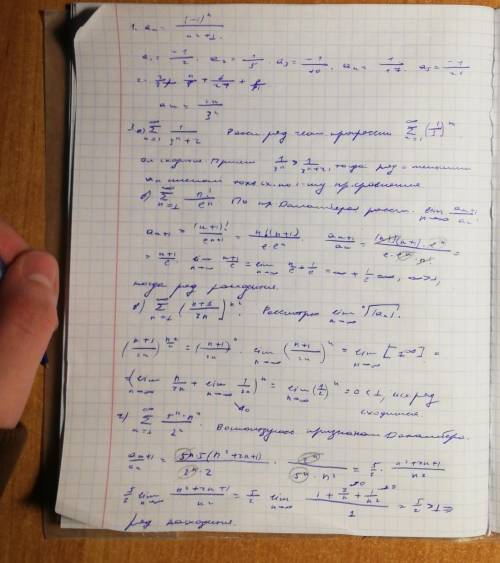 1. aₙ = (-1)ⁿ / (n²+1).
a₁ = -1/2, a₂ = 1/5, a₃ = -1/10, a₄ = 1/17, a₅ = -1/
2. + /27 +
aₙ = 2n/3ⁿ
3. а) ∑_{n=1}^∞ 1/(3ⁿ+2) ряд прогрессии ∑_{n=1}^∞ (1/3)ⁿ
он сходится. Причем 1/3ⁿ > 1/(3ⁿ+2), тогда ряд с меньшими
сравнения
б) ∑_{n=1}^∞ n!/eⁿ По пр. Даламбера рассм. lim_{n→∞} aₙ₊₁/aₙ
aₙ₊₁ = (n+1)!/eⁿ⁺¹ = n!(n+1)/(e·eⁿ) aₙ₊₁/aₙ = n!(n+1)·eⁿ/(e·eⁿ·n!) =
= (n+1)/e. lim_{n→∞} (n+1)/e = lim_{n→∞} n/e + 1/e = ∞ + 1/e = ∞, ∞>1,
тогда ряд расходится.
в) ∑_{n=1}^∞ [(n+1)/2n]^{n²}. Рассмотрим lim_{n→∞} ⁿ√|aₙ|.
((n+1)/2n)^{n²/n} = ((n+1)/2n)ⁿ. lim_{n→∞} ((n+1)/2n)ⁿ = lim_{n→∞} [1^∞] =
= (lim_{n→∞} n/2n + lim_{n→∞} 1/2n)ⁿ = lim_{n→∞} (1/2)ⁿ = 0 < 1, ряд
→0 сходится.
г) ∑_{n=1}^∞ 5ⁿ·n²/2ⁿ. Воспользуемся признаком Даламбера.
aₙ₊₁/aₙ = 5ⁿ·5(n²+2n+1)/(2ⁿ·2) · 2ⁿ/(5ⁿ·n²) = 5/2 · (n²+2n+1)/n²
5/2 lim_{n→∞} (n²+2n+1)/n² = 5/2 lim_{n→∞} (1 + 2/n + 1/n²)/1 = 5/2 > 1 ⇒
ряд расходится.